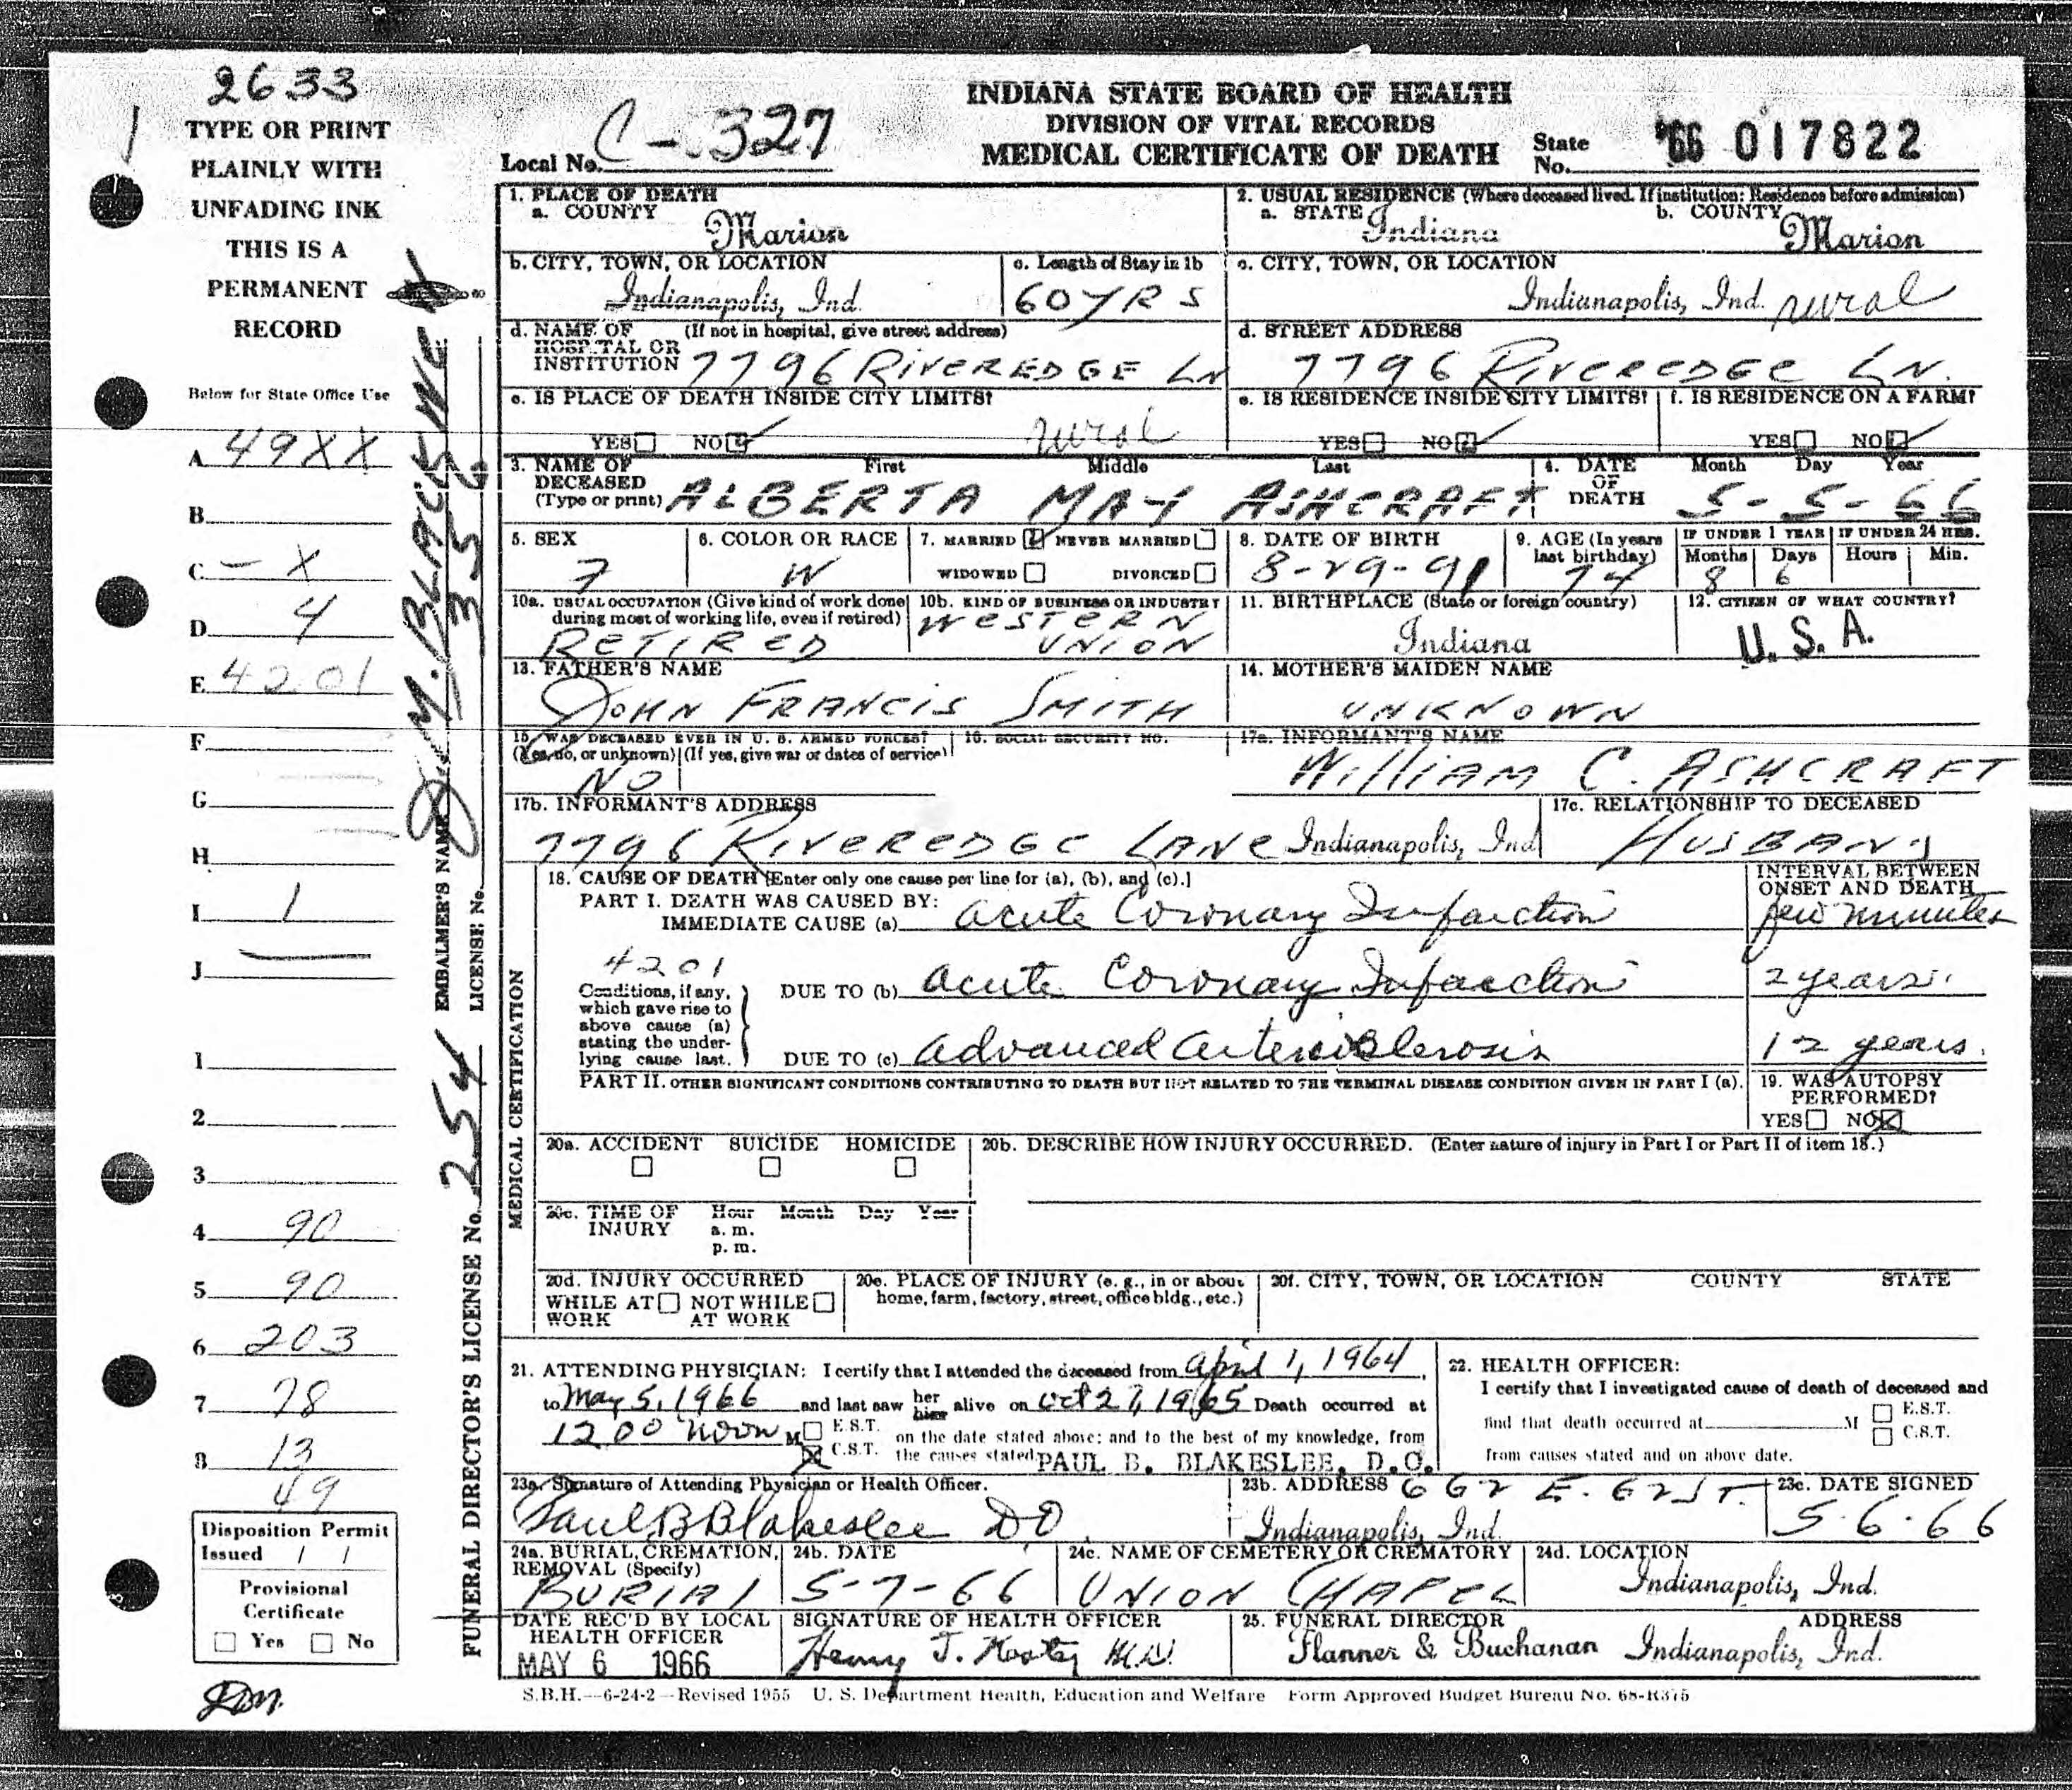 2633
TYPE OR PRINT
PLAINLY WITH
UNFADING INK
THIS IS A
PERMANENT
RECORD
Below for State Office Use
A 49XX
B
C - X
D 4
E 4201
F
G
H
I 1
J
1
2
3
4 90
5 90
6 203
7 78
8 13
49
Disposition Permit
Issued / /
Provisional
Certificate
Yes No
EMBALMER'S NAME
LICENSE No.
FUNERAL DIRECTOR'S LICENSE No. 254
INDIANA STATE BOARD OF HEALTH
DIVISION OF VITAL RECORDS
MEDICAL CERTIFICATE OF DEATH
Local No. C-327
State No. '66 017822
1. PLACE OF DEATH
a. COUNTY Marion
2. USUAL RESIDENCE (Where deceased lived. If institution: Residence before admission)
a. STATE Indiana b. COUNTY Marion
b. CITY, TOWN, OR LOCATION Indianapolis, Ind.
c. Length of Stay in 1b 60 YRS
c. CITY, TOWN, OR LOCATION Indianapolis, Ind. rural
d. NAME OF HOSPITAL OR INSTITUTION (If not in hospital, give street address) 7796 RIVEREDGE LN
d. STREET ADDRESS 7796 RIVEREDGE LN.
e. IS PLACE OF DEATH INSIDE CITY LIMITS?
YES NO rural
e. IS RESIDENCE INSIDE CITY LIMITS?
YES NO
f. IS RESIDENCE ON A FARM?
YES NO
3. NAME OF DECEASED (Type or print) First Middle Last
ALBERTA MAY ASHCRAFT
4. DATE OF DEATH Month Day Year
5-5-66
5. SEX F
6. COLOR OR RACE W
7. MARRIED NEVER MARRIED
WIDOWED DIVORCED
8. DATE OF BIRTH 8-29-91
9. AGE (In years last birthday) 74
IF UNDER 1 YEAR Months 8 Days 6
IF UNDER 24 HRS. Hours Min.
10a. USUAL OCCUPATION (Give kind of work done during most of working life, even if retired) RETIRED
10b. KIND OF BUSINESS OR INDUSTRY WESTERN UNION
11. BIRTHPLACE (State or foreign country) Indiana
12. CITIZEN OF WHAT COUNTRY? U. S. A.
13. FATHER'S NAME JOHN FRANCIS SMITH
14. MOTHER'S MAIDEN NAME UNKNOWN
15. WAS DECEASED EVER IN U. S. ARMED FORCES?
(Yes, no, or unknown) (If yes, give war or dates of service)
NO
16. SOCIAL SECURITY NO.
17a. INFORMANT'S NAME WILLIAM C. ASHCRAFT
17b. INFORMANT'S ADDRESS 7796 RIVEREDGE LANE Indianapolis, Ind
17c. RELATIONSHIP TO DECEASED HUSBAND
MEDICAL CERTIFICATION
18. CAUSE OF DEATH [Enter only one cause per line for (a), (b), and (c).]
INTERVAL BETWEEN ONSET AND DEATH
PART I. DEATH WAS CAUSED BY:
IMMEDIATE CAUSE (a) Acute Coronary Infarction few minutes
4201
Conditions, if any, which gave rise to above cause (a) stating the underlying cause last.
DUE TO (b) Acute Coronary Infarction 2 years.
DUE TO (c) Advanced Arteriosclerosis 12 years.
PART II. OTHER SIGNIFICANT CONDITIONS CONTRIBUTING TO DEATH BUT NOT RELATED TO THE TERMINAL DISEASE CONDITION GIVEN IN PART I (a).
19. WAS AUTOPSY PERFORMED?
YES NO
20a. ACCIDENT SUICIDE HOMICIDE
20b. DESCRIBE HOW INJURY OCCURRED. (Enter nature of injury in Part I or Part II of item 18.)
20c. TIME OF INJURY Hour Month Day Year
a. m.
p. m.
20d. INJURY OCCURRED
WHILE AT WORK NOT WHILE AT WORK
20e. PLACE OF INJURY (e. g., in or about home, farm, factory, street, office bldg., etc.)
20f. CITY, TOWN, OR LOCATION COUNTY STATE
21. ATTENDING PHYSICIAN: I certify that I attended the deceased from April 1, 1964
to May 5, 1966 and last saw her him alive on Oct 27, 1965 Death occurred at
12 00 noon M E.S.T. C.S.T. on the date stated above; and to the best of my knowledge, from
the causes stated PAUL B. BLAKESLEE, D.O.
22. HEALTH OFFICER:
I certify that I investigated cause of death of deceased and
find that death occurred at M E.S.T. C.S.T.
from causes stated and on above date.
23a. Signature of Attending Physician or Health Officer. Paul B Blakeslee DO
23b. ADDRESS 662 E. 62 ST. Indianapolis, Ind.
23c. DATE SIGNED 5-6-66
24a. BURIAL, CREMATION, REMOVAL (Specify) BURIAL
24b. DATE 5-7-66
24c. NAME OF CEMETERY OR CREMATORY UNION CHAPEL
24d. LOCATION Indianapolis, Ind.
DATE REC'D BY LOCAL HEALTH OFFICER MAY 6 1966
SIGNATURE OF HEALTH OFFICER Henry
25. FUNERAL DIRECTOR ADDRESS
Flanner & Buchanan Indianapolis, Ind.
S.B.H.—6-24-2—Revised 1955 U. S. Department Health, Education and Welfare Form Approved Budget Bureau No. 68-R375